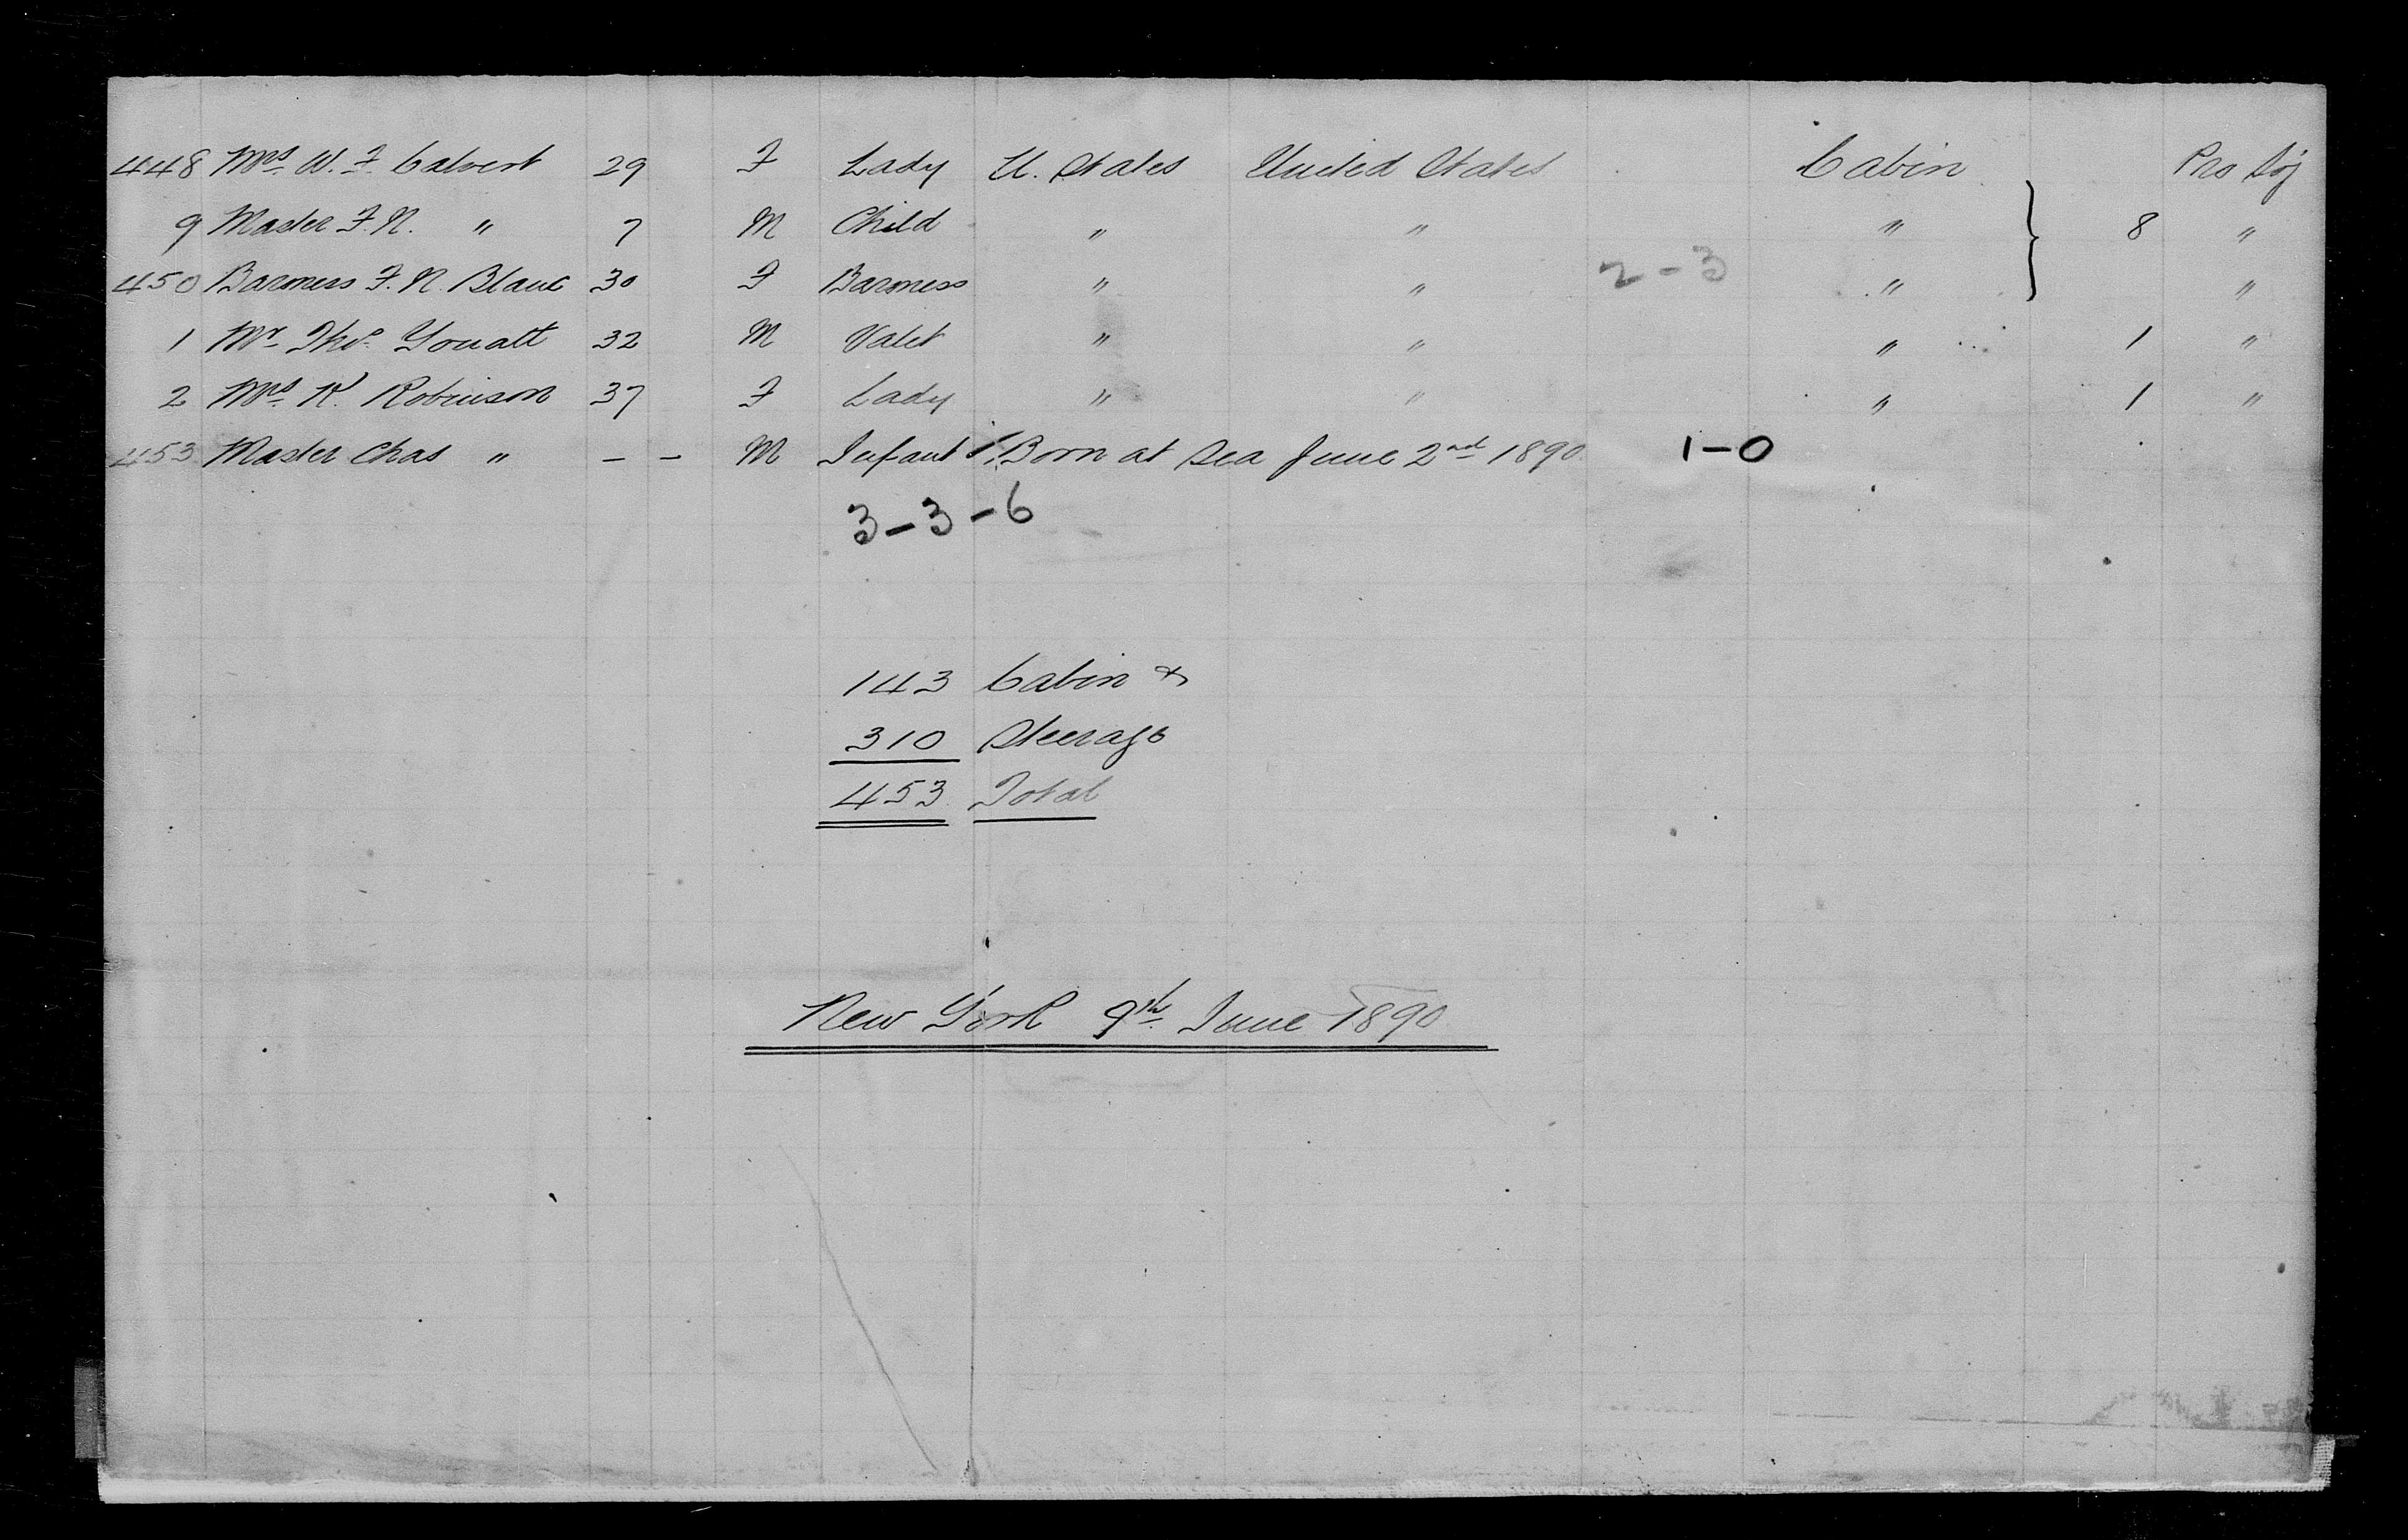 448 Mrs. W. F. Calvert 29 F Lady U. States United States Cabin Pro Soj
9 Master F. N. " 7 M Child " " " 8 "
450 Baroness F. N. Blanc 30 F Baroness " " 2-3 " "
1 Mr. Thos. Youatt 32 M Valet " " " 1 "
2 Mrs. K. Robinson 37 F Lady " " " 1 "
453 Master Chas " — — M Infant Born at Sea June 2nd 1890 1-0
3-3-6
143 Cabin &
310 Steerage
453 Total
New York 9th June 1890